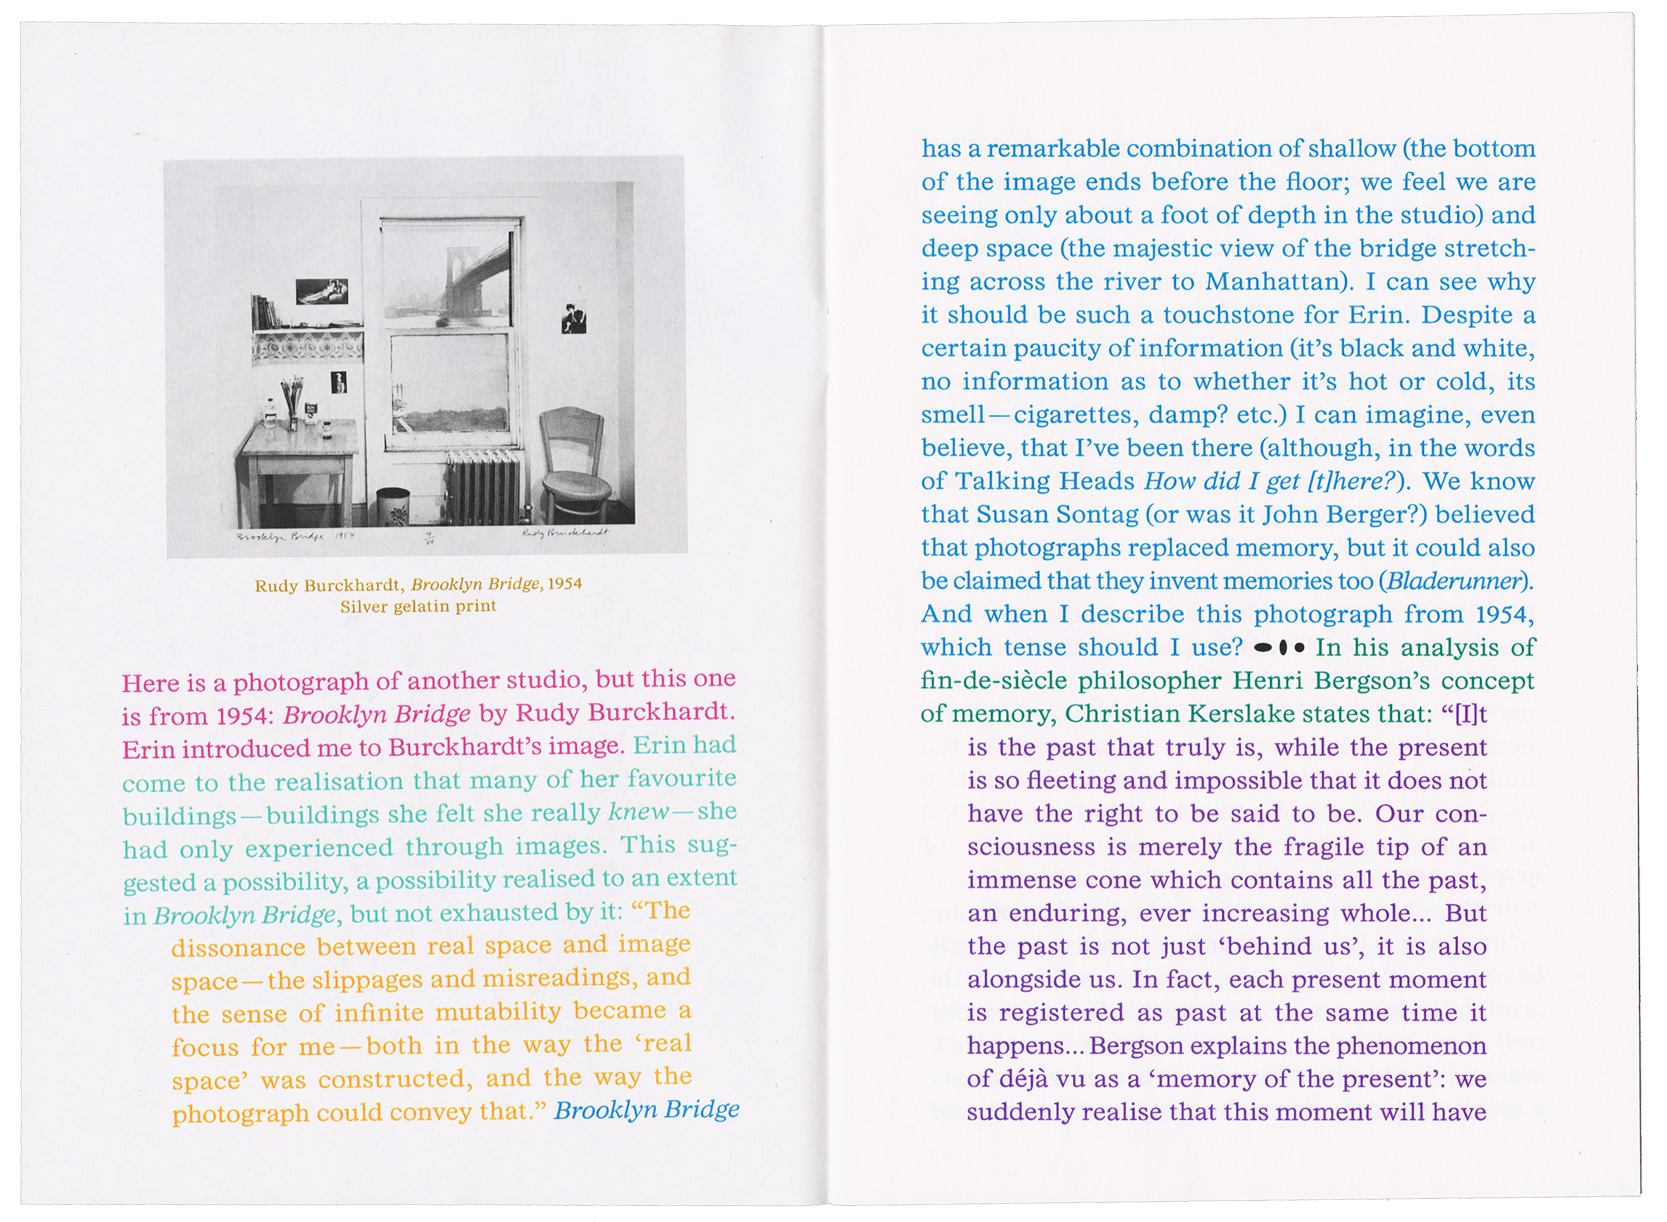 Brooklyn Bridge 1954
Rudy Burckhardt
Rudy Burckhardt, Brooklyn Bridge, 1954
Silver gelatin print
Here is a photograph of another studio, but this one
is from 1954: Brooklyn Bridge by Rudy Burckhardt.
Erin introduced me to Burckhardt’s image. Erin had
come to the realisation that many of her favourite
buildings—buildings she felt she really knew—she
had only experienced through images. This sug-
gested a possibility, a possibility realised to an extent
in Brooklyn Bridge, but not exhausted by it: “The
dissonance between real space and image
space—the slippages and misreadings, and
the sense of infinite mutability became a
focus for me—both in the way the ‘real
space’ was constructed, and the way the
photograph could convey that.” Brooklyn Bridge
has a remarkable combination of shallow (the bottom
of the image ends before the floor; we feel we are
seeing only about a foot of depth in the studio) and
deep space (the majestic view of the bridge stretch-
ing across the river to Manhattan). I can see why
it should be such a touchstone for Erin. Despite a
certain paucity of information (it’s black and white,
no information as to whether it’s hot or cold, its
smell—cigarettes, damp? etc.) I can imagine, even
believe, that I’ve been there (although, in the words
of Talking Heads How did I get [t]here?). We know
that Susan Sontag (or was it John Berger?) believed
that photographs replaced memory, but it could also
be claimed that they invent memories too (Bladerunner).
And when I describe this photograph from 1954,
which tense should I use? In his analysis of
fin-de-siècle philosopher Henri Bergson’s concept
of memory, Christian Kerslake states that: “[I]t
is the past that truly is, while the present
is so fleeting and impossible that it does not
have the right to be said to be. Our con-
sciousness is merely the fragile tip of an
immense cone which contains all the past,
an enduring, ever increasing whole... But
the past is not just ‘behind us’, it is also
alongside us. In fact, each present moment
is registered as past at the same time it
happens... Bergson explains the phenomenon
of déjà vu as a ‘memory of the present’: we
suddenly realise that this moment will have